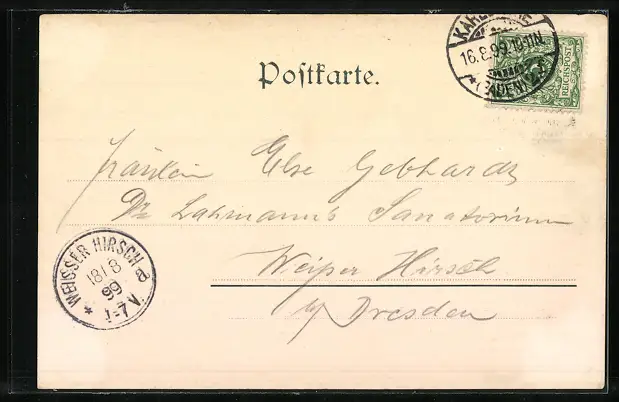 KARLSRUHE
16.8.99.10-11N.
* (BADEN)
REICHSPOST
Postkarte.
Fräulein Else Gebhardt
Dr. Lahmann's Sanatorium
Weißer Hirsch
b/ Dresden
* WEISSER HIRSCH a
18/8
99
1-7V.